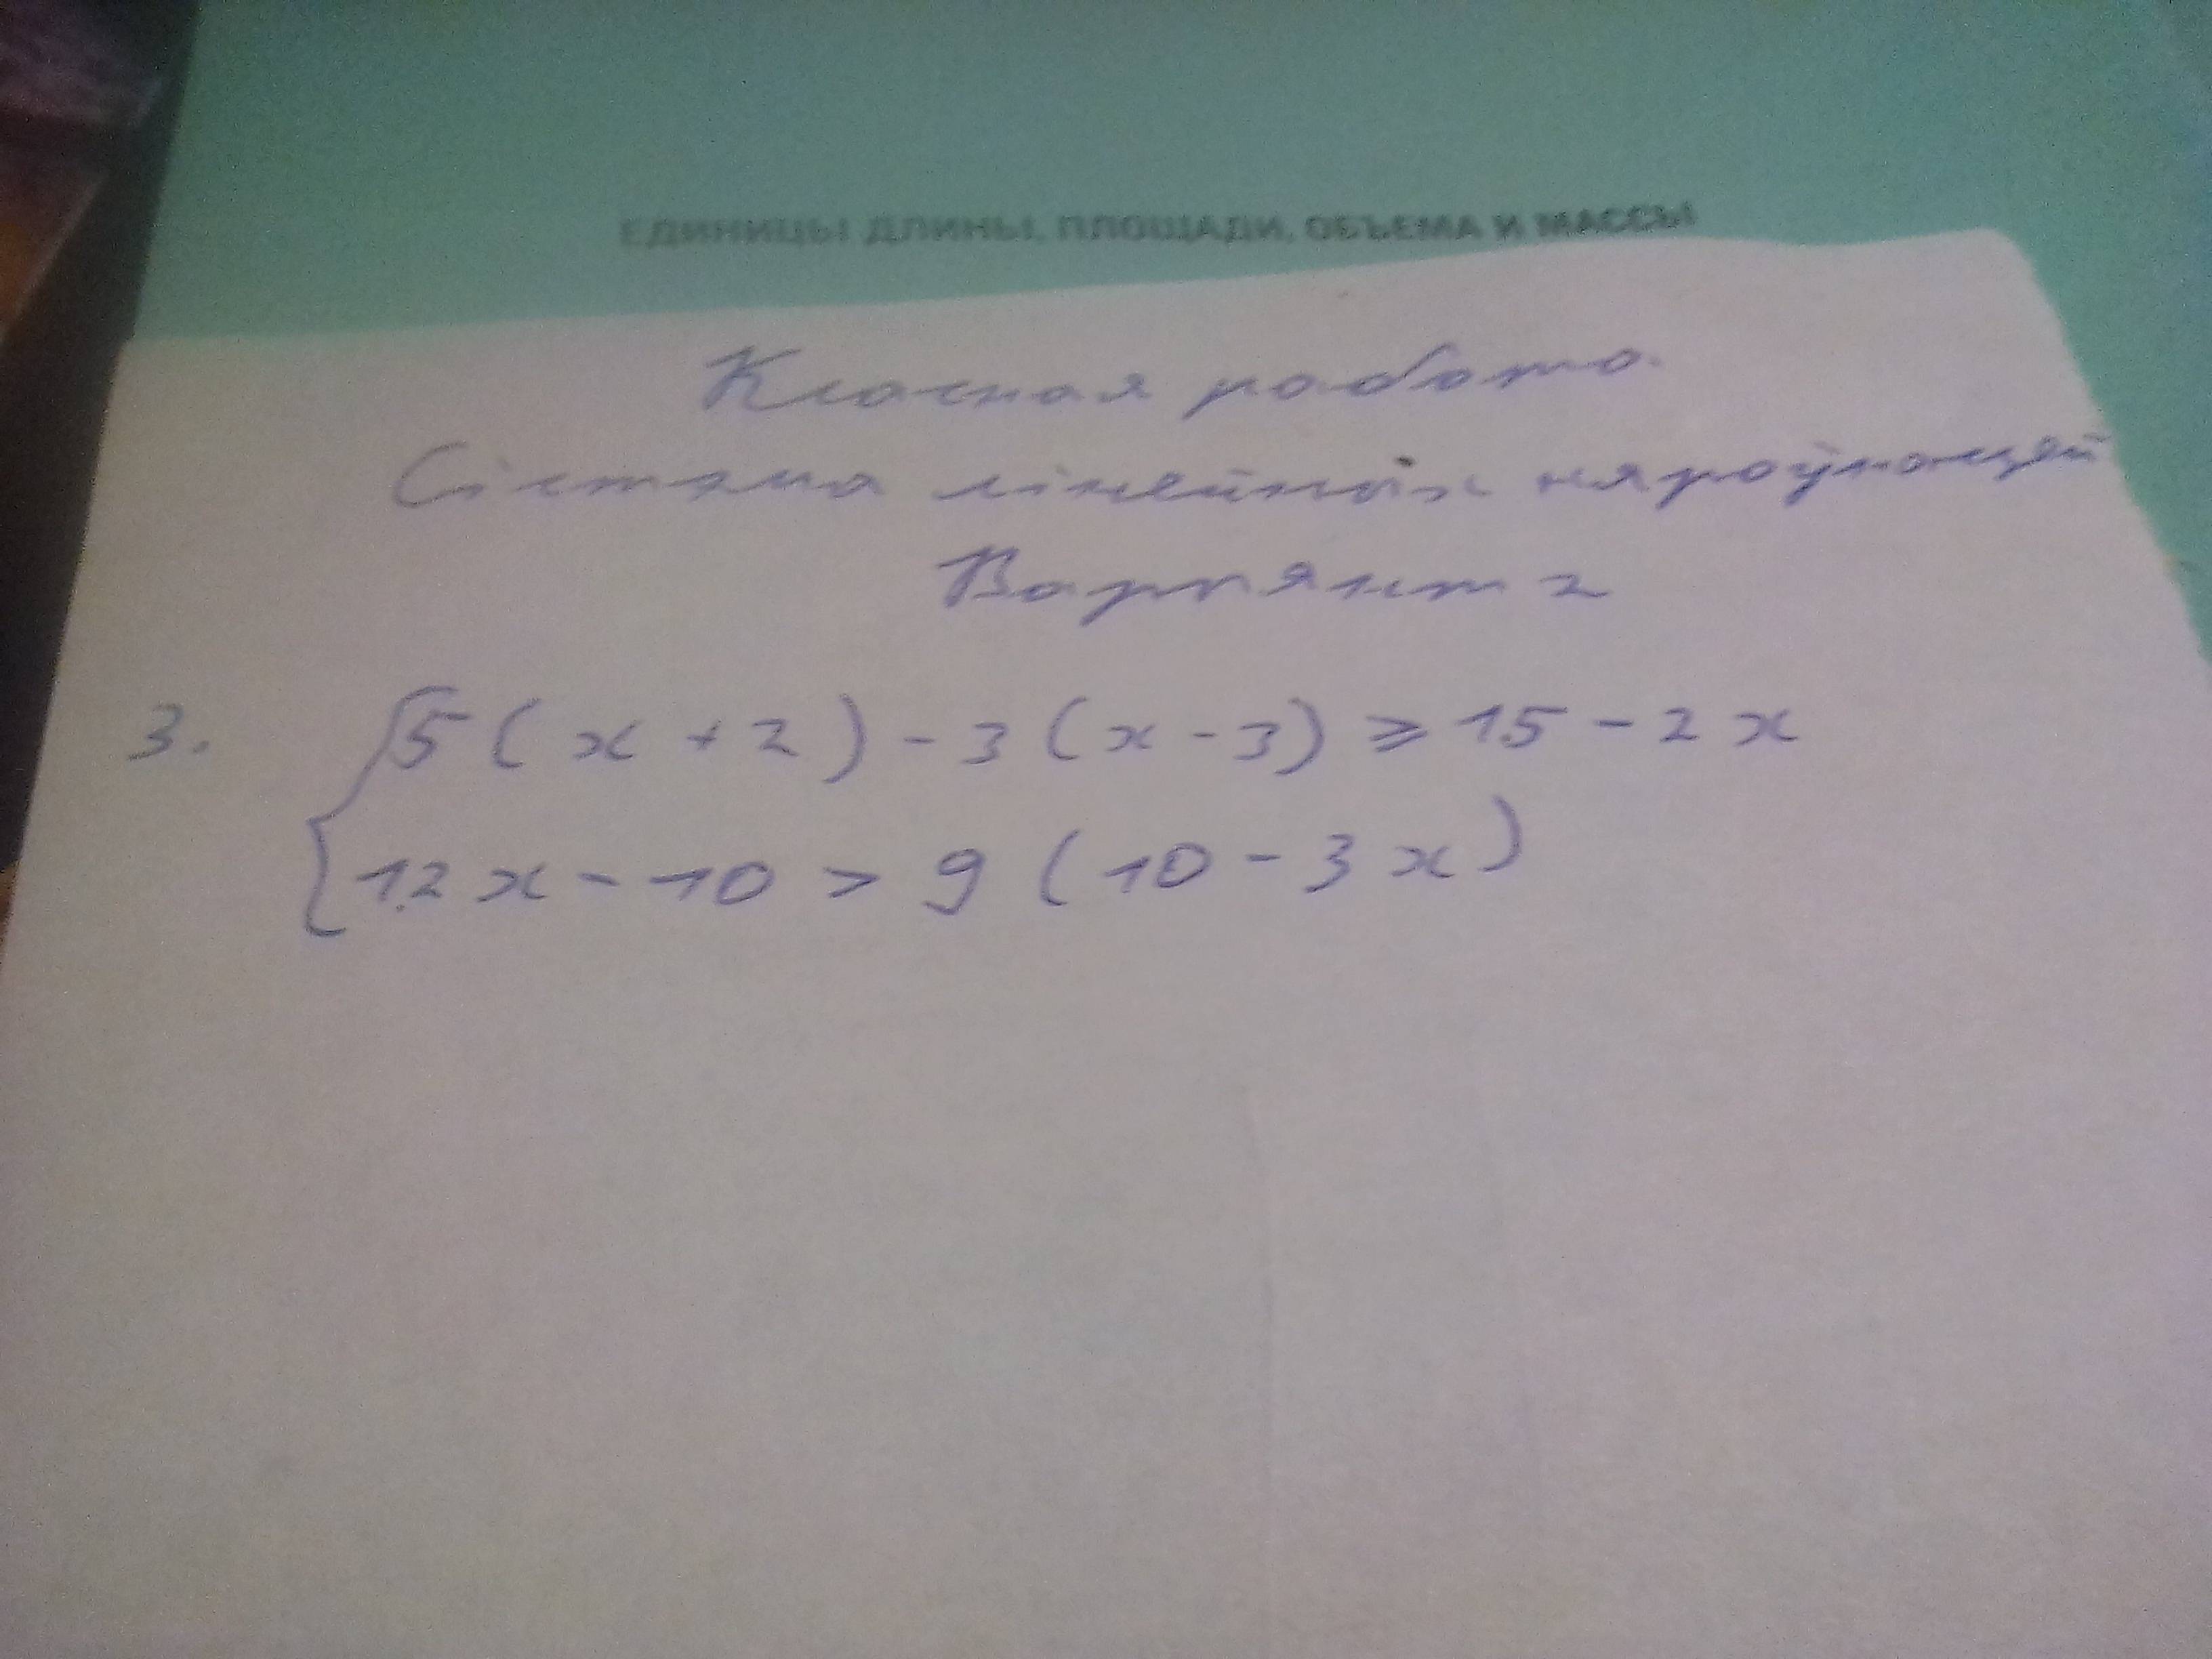 ЕДИНИЦЫ ДЛИНЫ, ПЛОЩАДИ, ОБЪЕМА И МАССЫ
Класная работа.
Сістэма лінейных няроўнасцей
Варыянт 2
3. { 5 ( x + 2 ) - 3 ( x - 3 ) ⩾ 15 - 2 x
12 x - 10 > 9 ( 10 - 3 x )